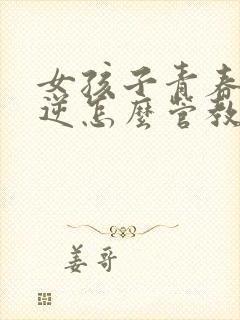 女孩子青春
逆怎麼管教
姜哥